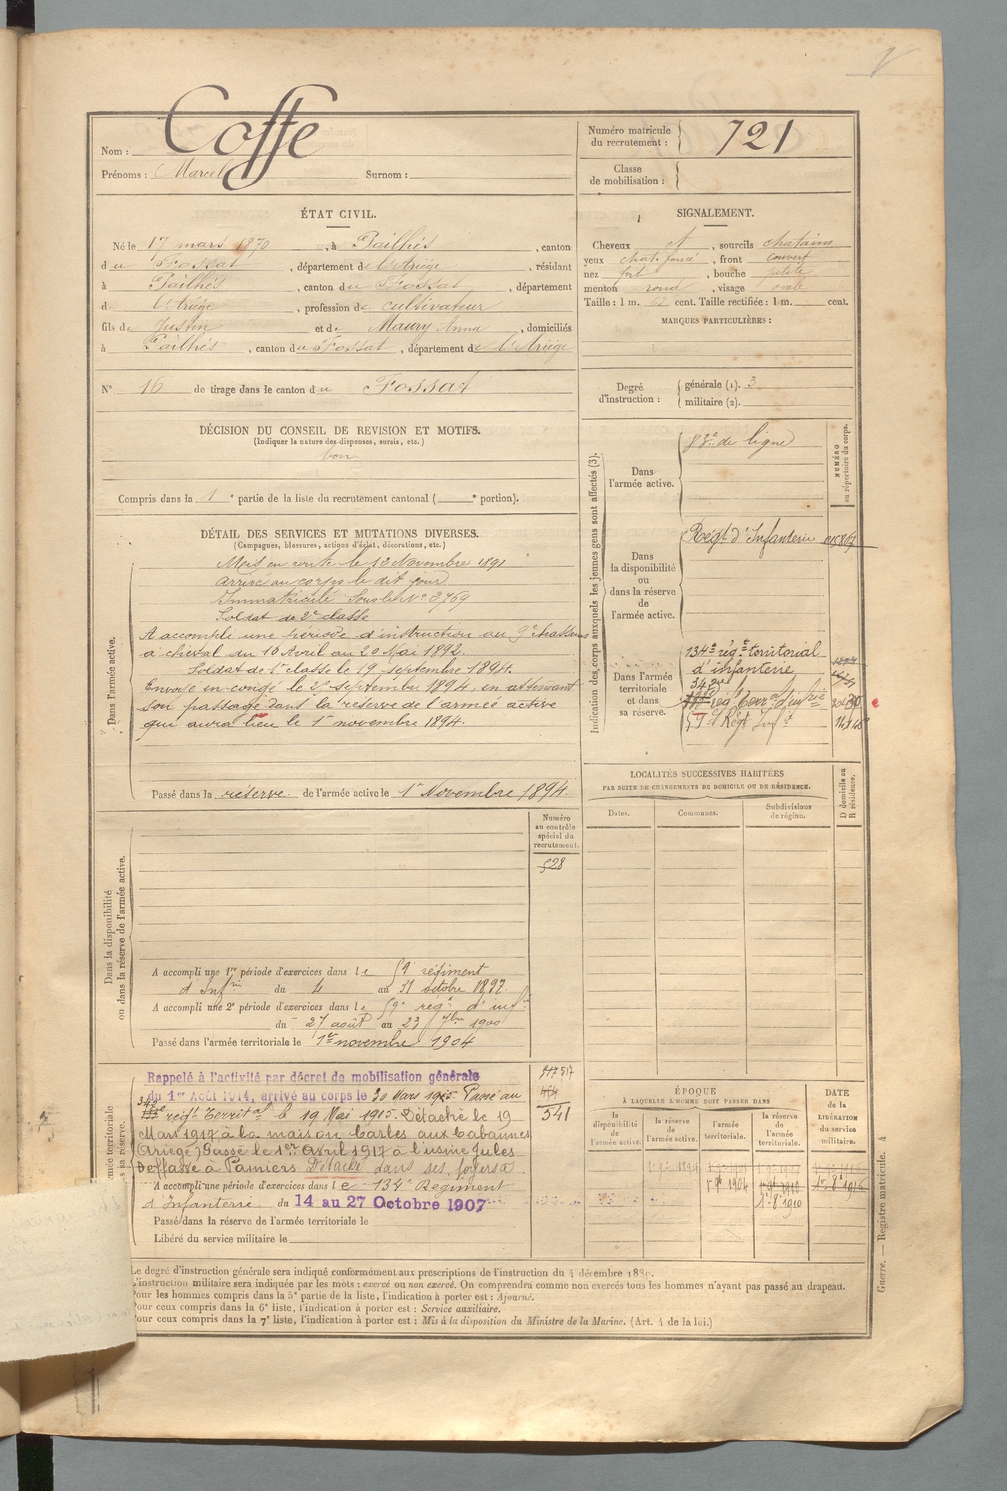 Nom : Coffe
Prénoms : Marcel Surnom :
Numéro matricule du recrutement : 721
Classe de mobilisation :
ÉTAT CIVIL.
Né le 17 mars 1870, à Pailhès, canton
du Fossat, département de l'Ariège, résidant
à Pailhès, canton du Fossat, département
d l'Ariège, profession de cultivateur
fils de Justin et de Maury Anna, domiciliés
à Pailhès, canton du Fossat, département de l'Ariège
N° 16 de tirage dans le canton du Fossat
SIGNALEMENT.
Cheveux ct, sourcils chatains
yeux chat. foncé, front couvert
nez fort, bouche petite
menton rond, visage ovale
Taille : 1 m. cent. Taille rectifiée : 1 m. cent.
MARQUES PARTICULIÈRES :
Degré d'instruction : générale (1). 3
militaire (2).
DÉCISION DU CONSEIL DE REVISION ET MOTIFS.
(Indiquer la nature des dispenses, sursis, etc.)
bon
Compris dans la 1e partie de la liste du recrutement cantonal (e portion).
DÉTAIL DES SERVICES ET MUTATIONS DIVERSES.
(Campagnes, blessures, actions d'éclat, décorations, etc.)
Dans l'armée active.
Mis en route le 12 Novembre 1891
Arrivé au corps le dit jour
Immatriculé sous le N° 3769
Soldat de 2e classe
A accompli une période d'instruction au 9e chasseurs
à cheval du 16 Avril au 20 Mai 1892.
Soldat de 1e classe le 19 septembre 1894.
Envoyé en congé le septembre 1894, en attendant
son passage dans la réserve de l'armée active
qui aura lieu le 1er novembre 1894.
Passé dans la réserve de l'armée active le 1er Novembre 1894.
Indication des corps auxquels les jeunes gens sont affectés (3).
NUMÉRO au répertoire du corps.
Dans l'armée active.
83e de ligne
Dans la disponibilité ou dans la réserve de l'armée active.
Régt d'Infanterie
Dans l'armée territoriale et dans sa réserve.
134e régt territorial
d'infanterie
59e Régt Inf
LOCALITÉS SUCCESSIVES HABITÉES
PAR SUITE DE CHANGEMENTS DE DOMICILE OU DE RÉSIDENCE.
Dates. Communes. Subdivisions de région. D domicile ou R résidence.
Dans la disponibilité ou dans la réserve de l'armée active.
Numéro au contrôle spécial du recrutement.
528
A accompli une 1re période d'exercices dans le 59e régiment
d'Infrie du 4 au 31 octobre 1897.
A accompli une 2e période d'exercices dans le 59e régt d'inf
du 27 août au 23 7bre 1900
Passé dans l'armée territoriale le 1er novembre 1904
Rappelé à l'activité par décret de mobilisation générale
du 1er Août 1914, arrivé au corps le 30 Mars 1915 Passé au
régt Territal le 19 Mai 1915. Détaché le 19
Mars 1917 à la maison Carles aux Cabannes
(Ariège) Passé le 1er Avril 1917 à l'usine Jules
Deffasse à Pamiers Détaché dans ses foyers
A accompli une période d'exercices dans le 134e Régiment
d'Infanterie du 14 au 27 Octobre 1907
Passé dans la réserve de l'armée territoriale le
Libéré du service militaire le
541
ÉPOQUE
À LAQUELLE L'HOMME DOIT PASSER DANS
la disponibilité de l'armée active. la réserve de l'armée active. l'armée territoriale. la réserve de l'armée territoriale.
DATE de la LIBÉRATION du service militaire.
Le degré d'instruction générale sera indiqué conformément aux prescriptions de l'instruction du 4 décembre 1889.
L'instruction militaire sera indiquée par les mots : exercé ou non exercé. On comprendra comme non exercés tous les hommes n'ayant pas passé au drapeau.
Pour les hommes compris dans la 5e partie de la liste, l'indication à porter est : Ajourné.
Pour ceux compris dans la 6e liste, l'indication à porter est : Service auxiliaire.
Pour ceux compris dans la 7e liste, l'indication à porter est : Mis à la disposition du Ministre de la Marine. (Art. 4 de la loi.)
Guerre. — Registre matricule. 4